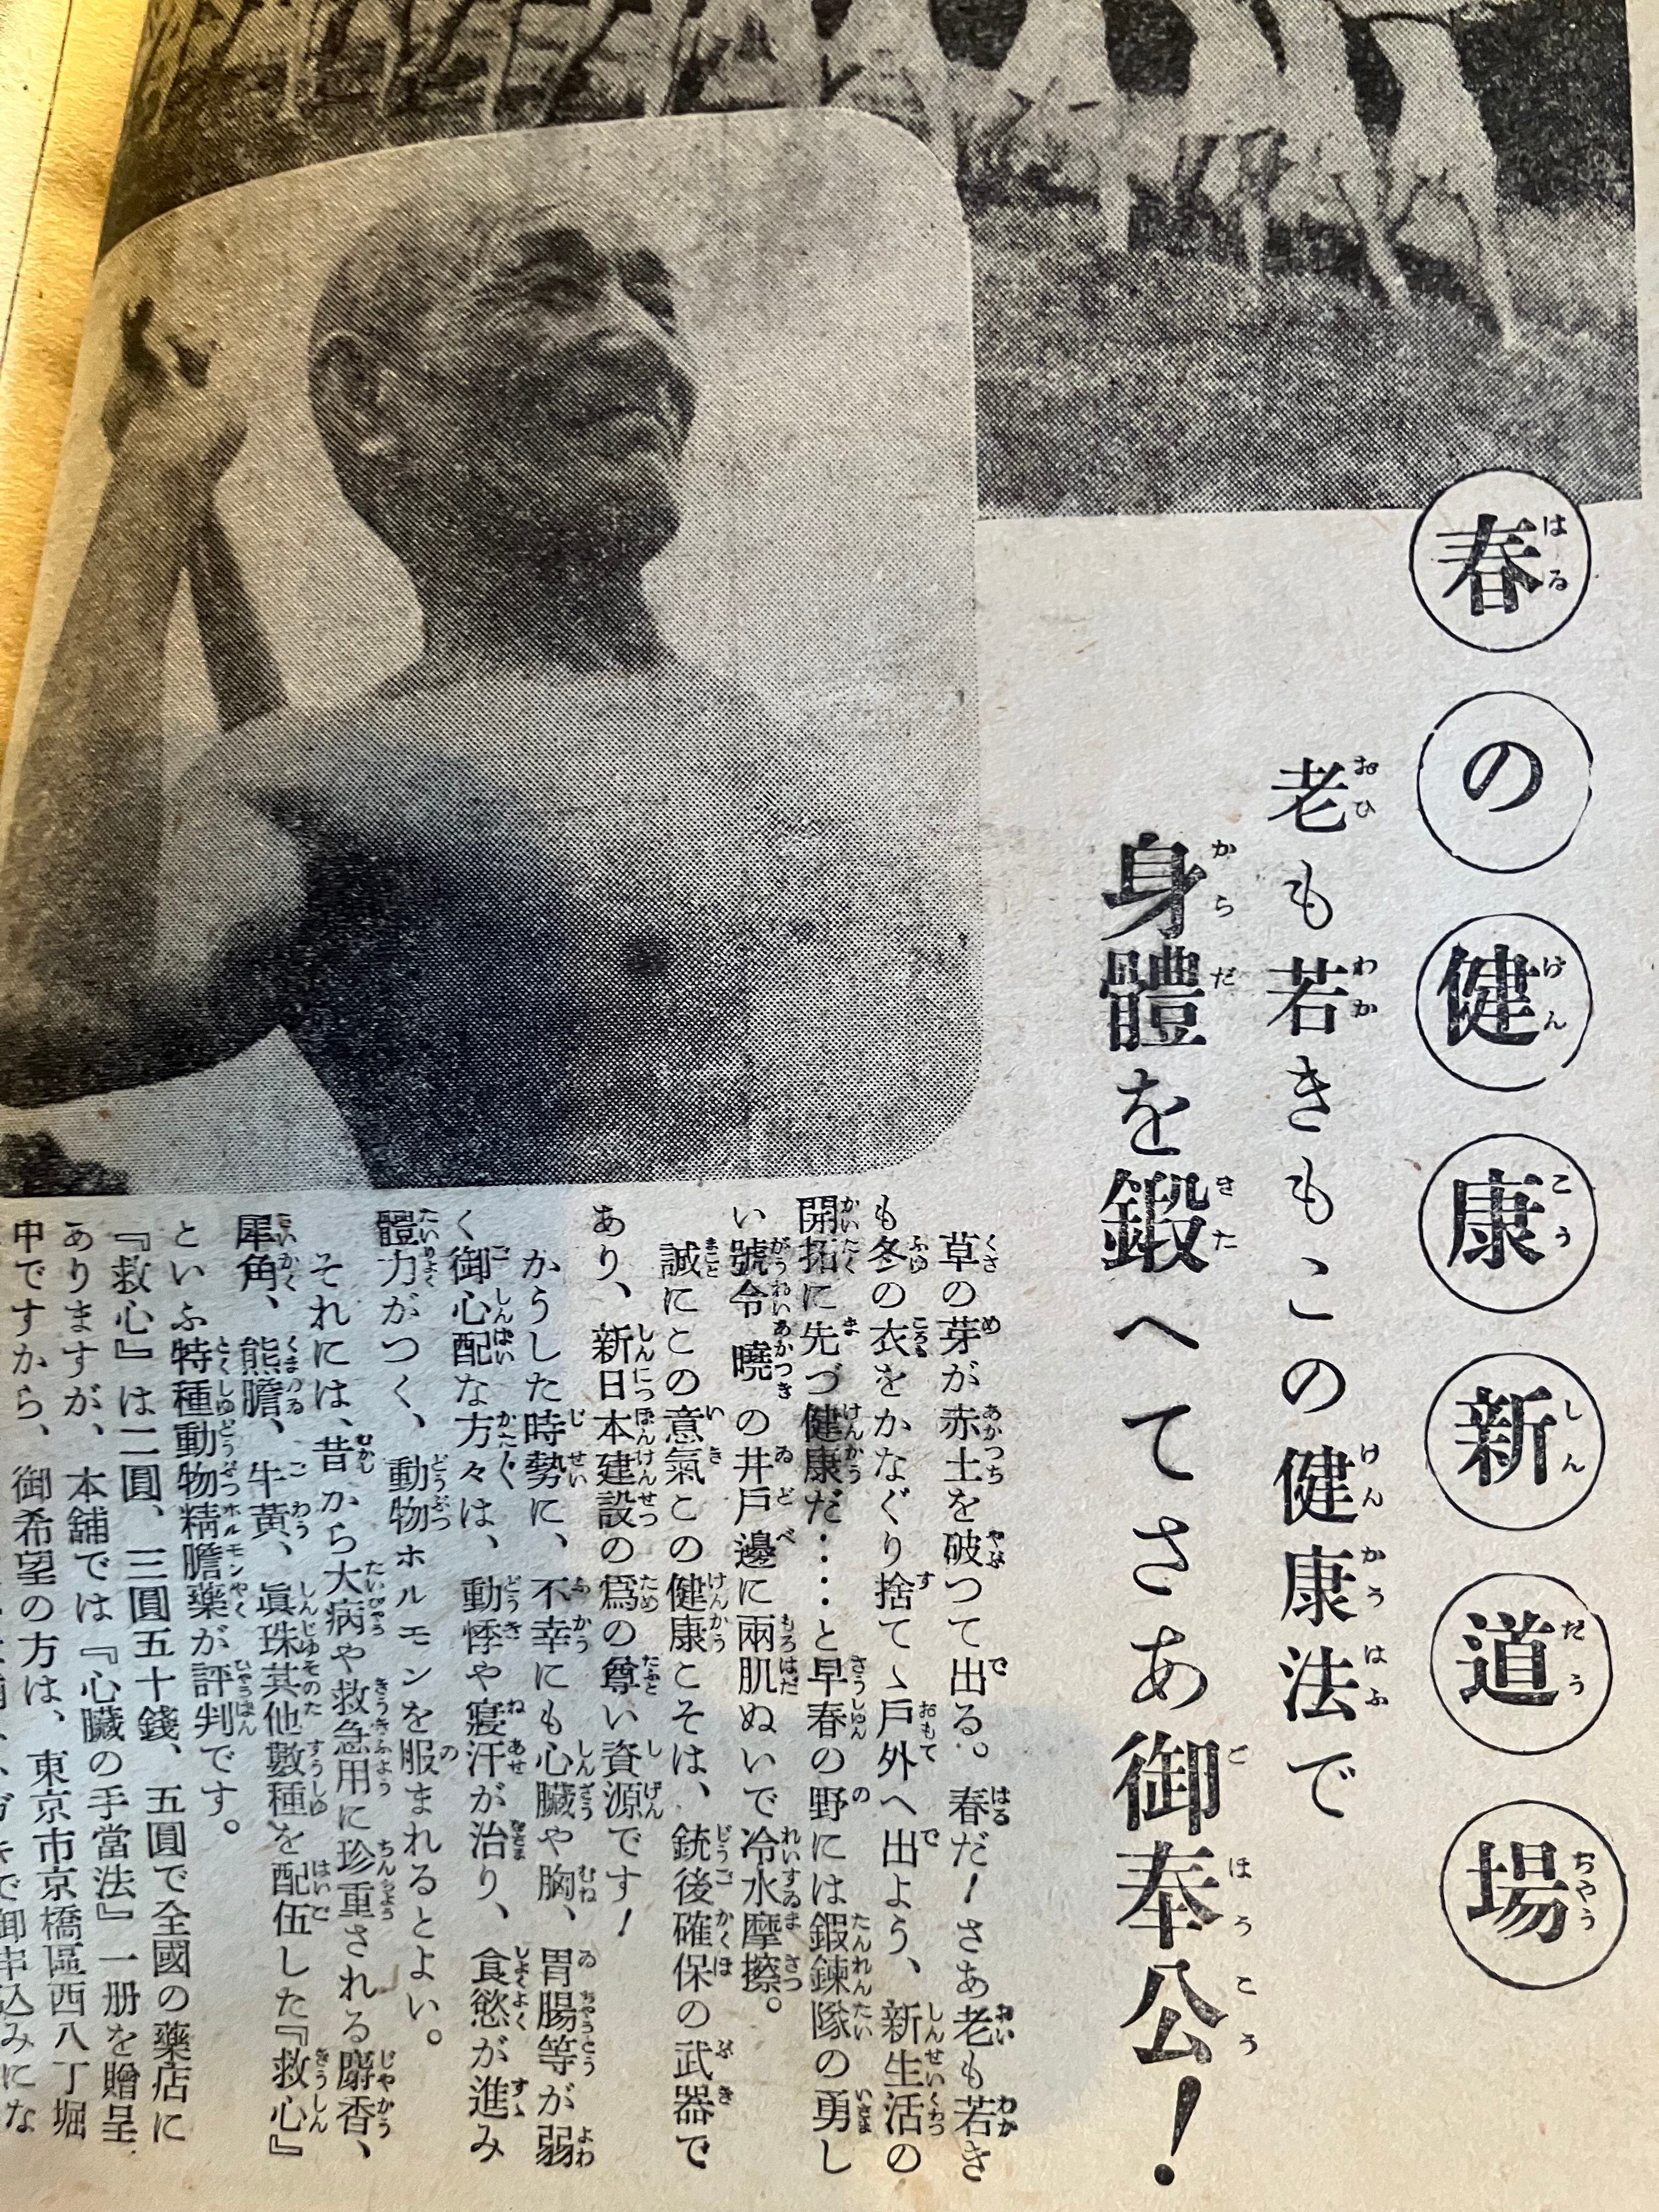 春の健康新道場
老も若きもこの健康法で
身體を鍛へてさあ御奉公!
草の芽が赤土を破つて出る。春だ!さあ老も若き
も冬の衣をかなぐり捨てゝ戸外へ出よう、新生活の
開拓に先づ健康だ‥‥と早春の野には鍜鍊隊の勇し
い號令 曉の井戸邊に兩肌ぬいで冷水摩擦。
誠にこの意氣この健康とそは、銃後確保の武器で
あり、新日本建設の爲の尊い資源です!
かうした時勢に、不幸にも心臟や胸、胃腸等が弱
く御心配な方々は、動悸や寢汗が治り、食慾が進み
體力がつく、動物ホルモンを服まれるとよい。
それには、昔から大病や救急用に珍重される麝香、
犀角、熊膽、牛黃、眞珠其他數種を配伍した『救心』
といふ特種動物精膽藥が評判です。
『救心』は二圓、三圓五十錢、五圓で全國の藥店に
ありますが、本舖では『心臟の手當法』一册を贈呈
中ですから、御希望の方は、東京市京橋區西八丁堀